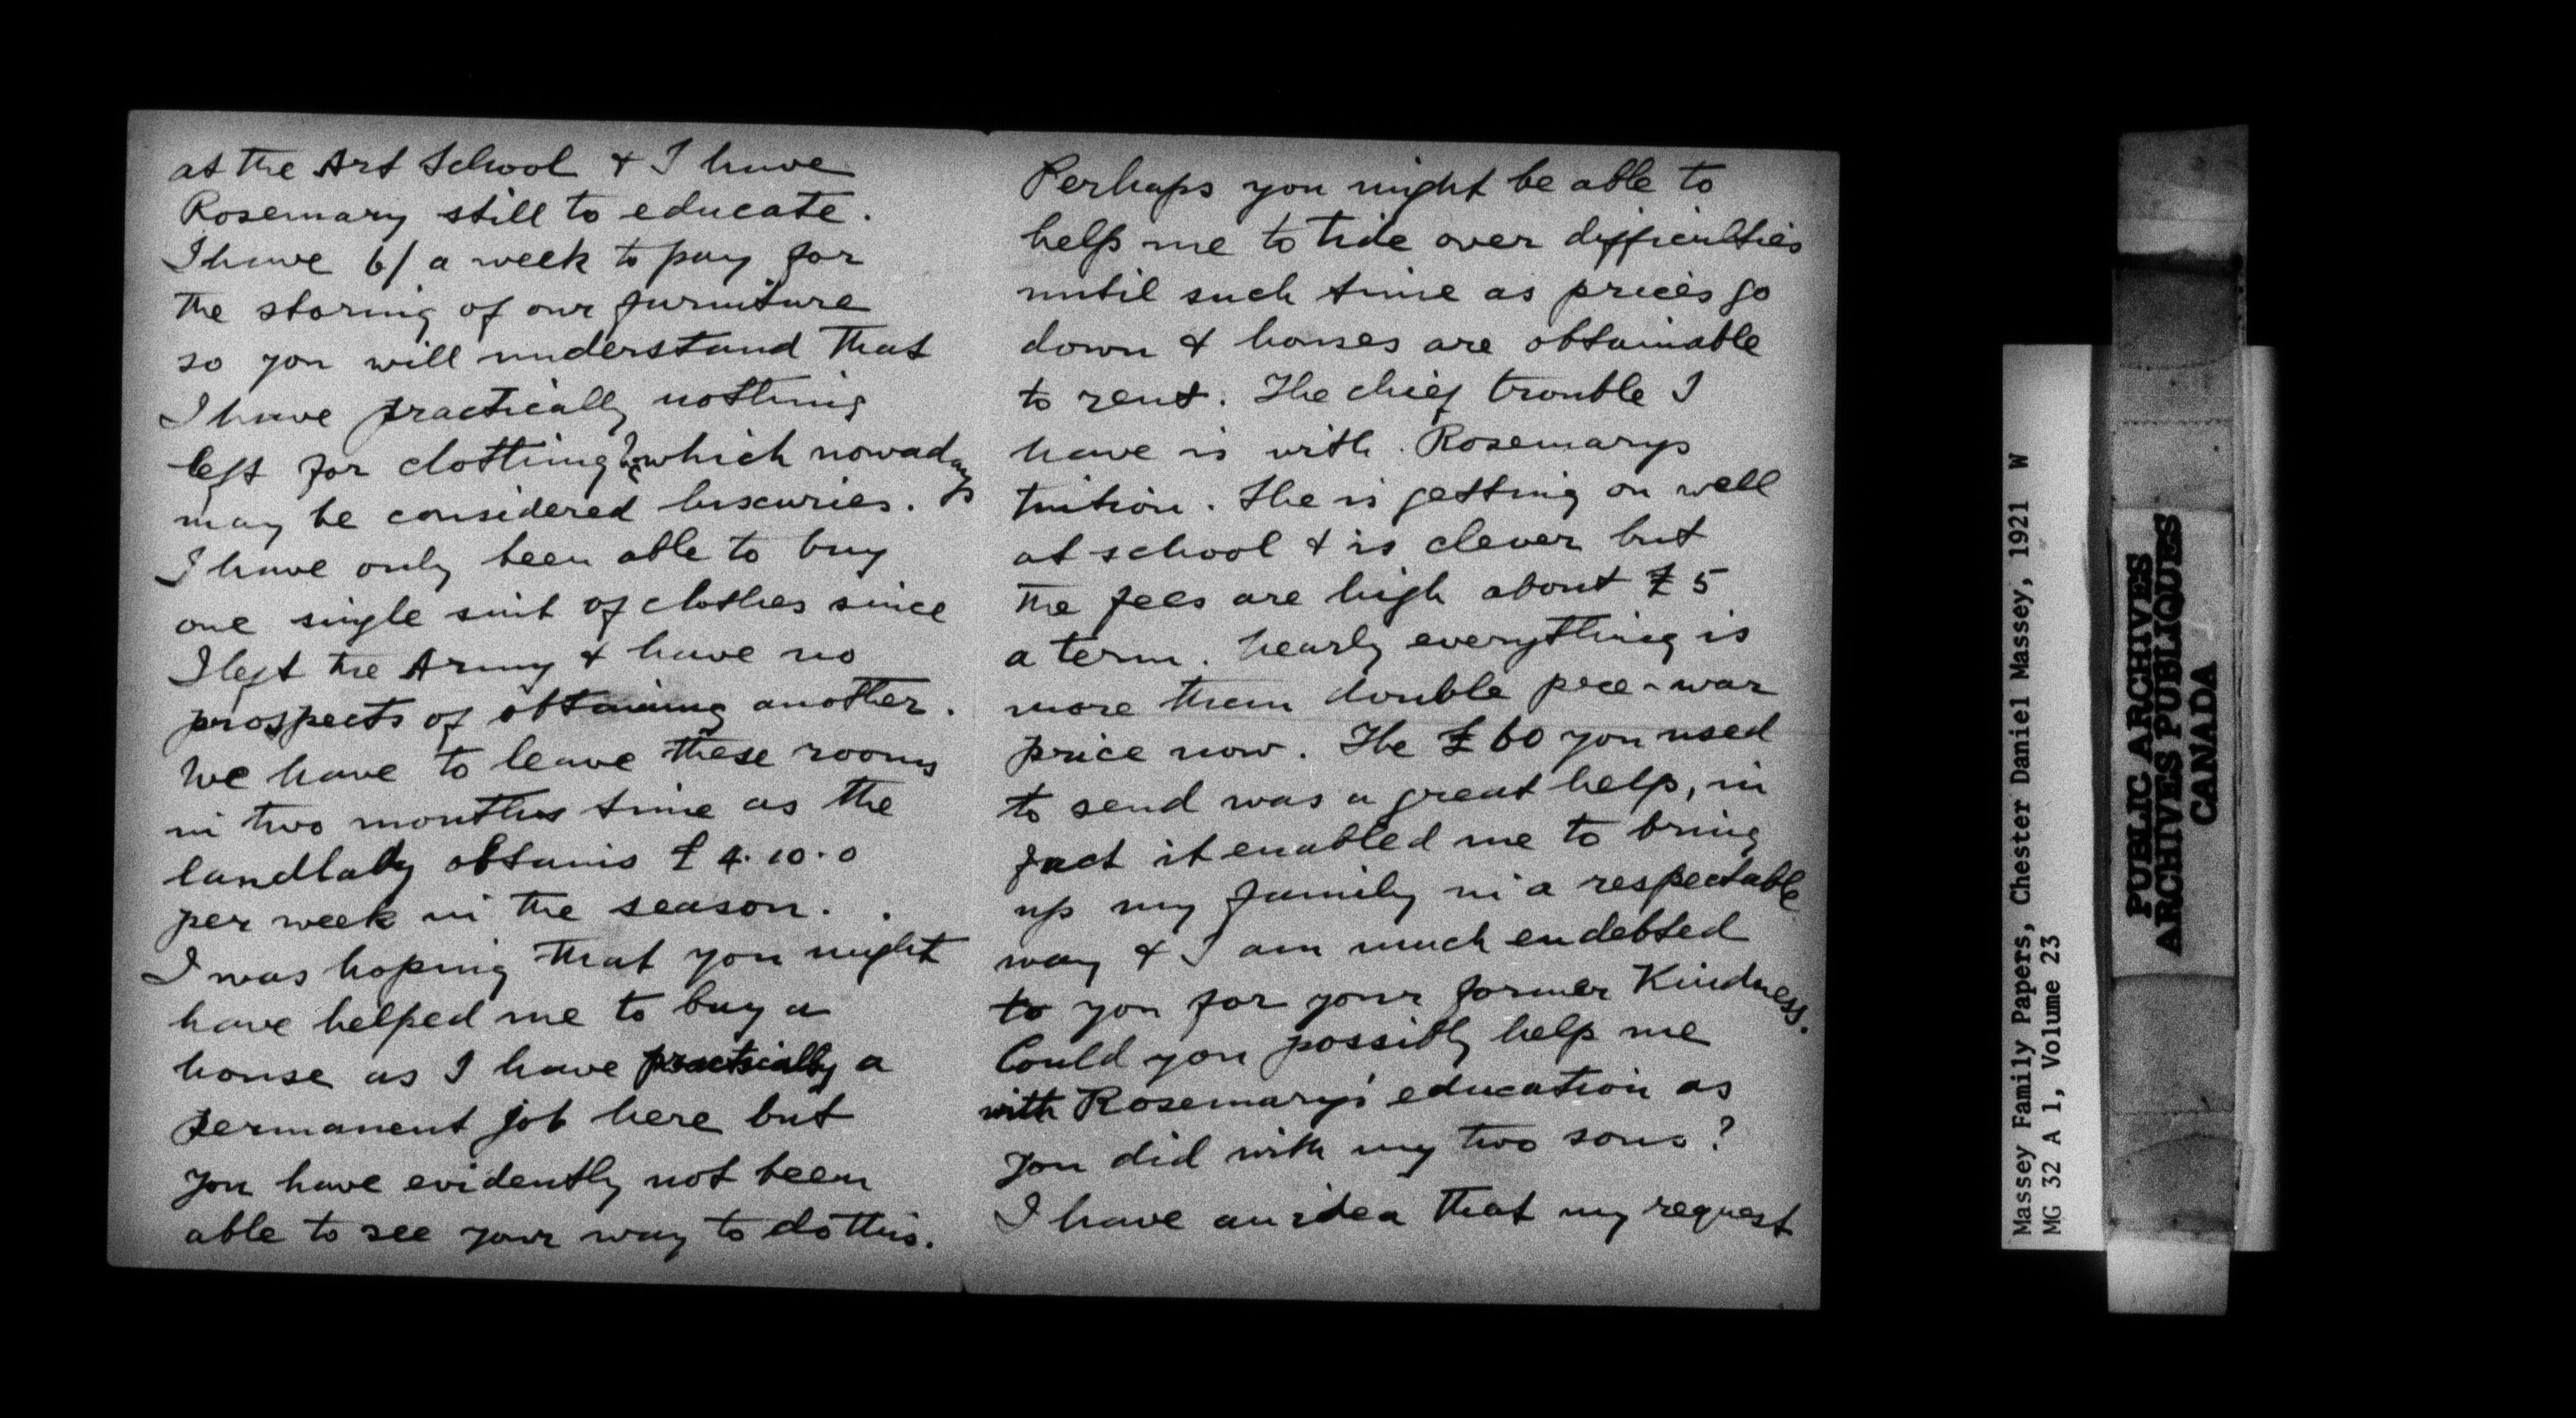 at the Art School & I have
Rosemary still to educate.
I have 6/ a week to pay for
the storing of our furniture
so you will understand that
I have practically nothing
left for clothing which nowadays
may be considered luxuries.
I have only been able to buy
one single suit of clothes since
I left the Army & have no
prospects of obtaining another.
We have to leave these rooms
in two months time as the
landlady obtains £4.10.0
per week in the season.
I was hoping that you might
have helped me to buy a
house as I have practically a
permanent job here but
you have evidently not been
able to see your way to do this.
Perhaps you might be able to
help me to tide over difficulties
until such time as prices go
down & houses are obtainable
to rent. The chief trouble I
have is with Rosemarys
tuition. She is getting on well
at school & is clever but
the fees are high about £5
a term. Nearly everything is
more than double pre-war
price now. The £60 you used
to send was a great help, in
fact it enabled me to bring
up my family in a respectable
way & I am much endebted
to you for your former Kindness.
Could you possibly help me
with Rosemary's education as
you did with my two sons?
I have an idea that my request
Massey Family Papers, Chester Daniel Massey, 1921 W
MG 32 A 1, Volume 23
PUBLIC ARCHIVES
ARCHIVES PUBLIQUES
CANADA